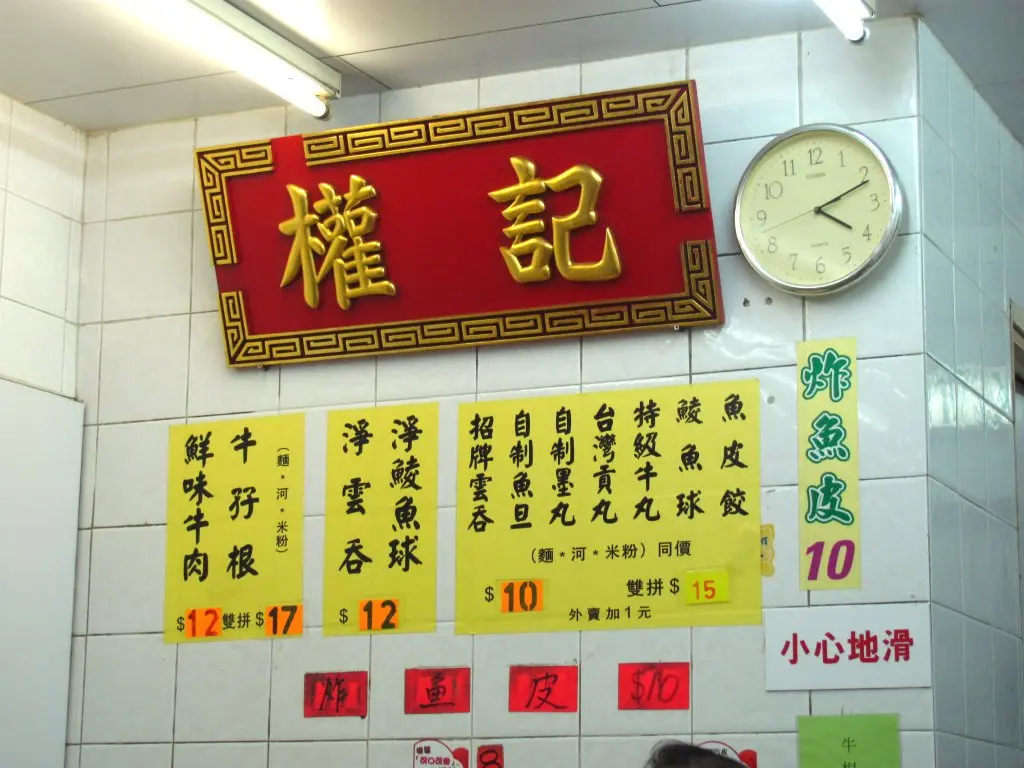 權記
12 1 2 3 4 5 6 7 8 9 10 11
CITIZEN
QUARTZ
炸魚皮
10
魚皮餃
鯪魚球
特級牛丸
台灣貢丸
自制墨丸
自制魚旦
招牌雲吞
(麵*河*米粉)同價
$10 雙拼$15
外賣加1元
淨鯪魚球
淨雲吞
$12
(麵*河*米粉)
牛孖根
鮮味牛肉
$12雙拼$17
小心地滑
炸魚皮$10
牛
8